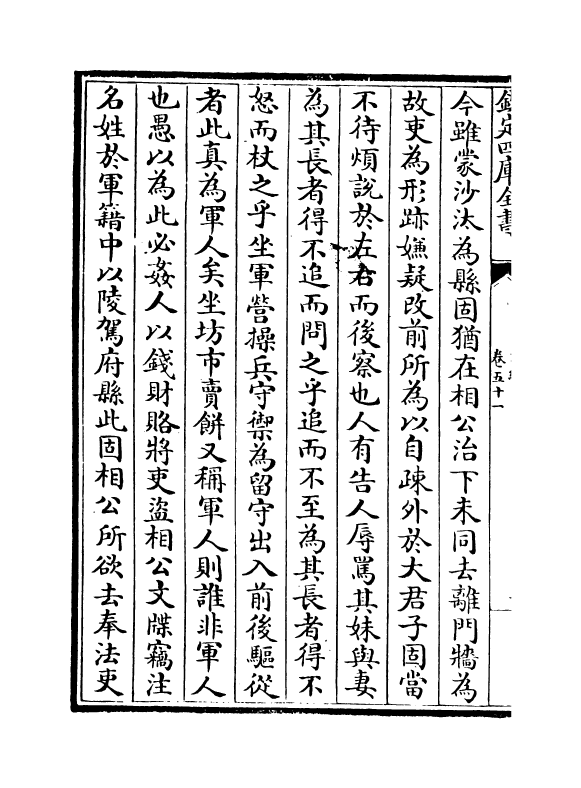 欽定四庫全書
卷五十一
今雖蒙沙汰為縣固猶在相公治下未同去離門牆為
故吏為形跡嫌疑改前所為以自疎外於大君子固當
不待煩說於左右而後察也人有告人辱罵其妹與妻
為其長者得不追而問之乎追而不至為其長者得不
怒而杖之乎坐軍營操兵守禦為留守出入前後驅從
者此真為軍人矣坐坊市賣餅又稱軍人則誰非軍人
也愚以為此必姦人以錢財賂將吏盜相公文牒竊注
名姓於軍籍中以陵駕府縣此固相公所欲去奉法吏